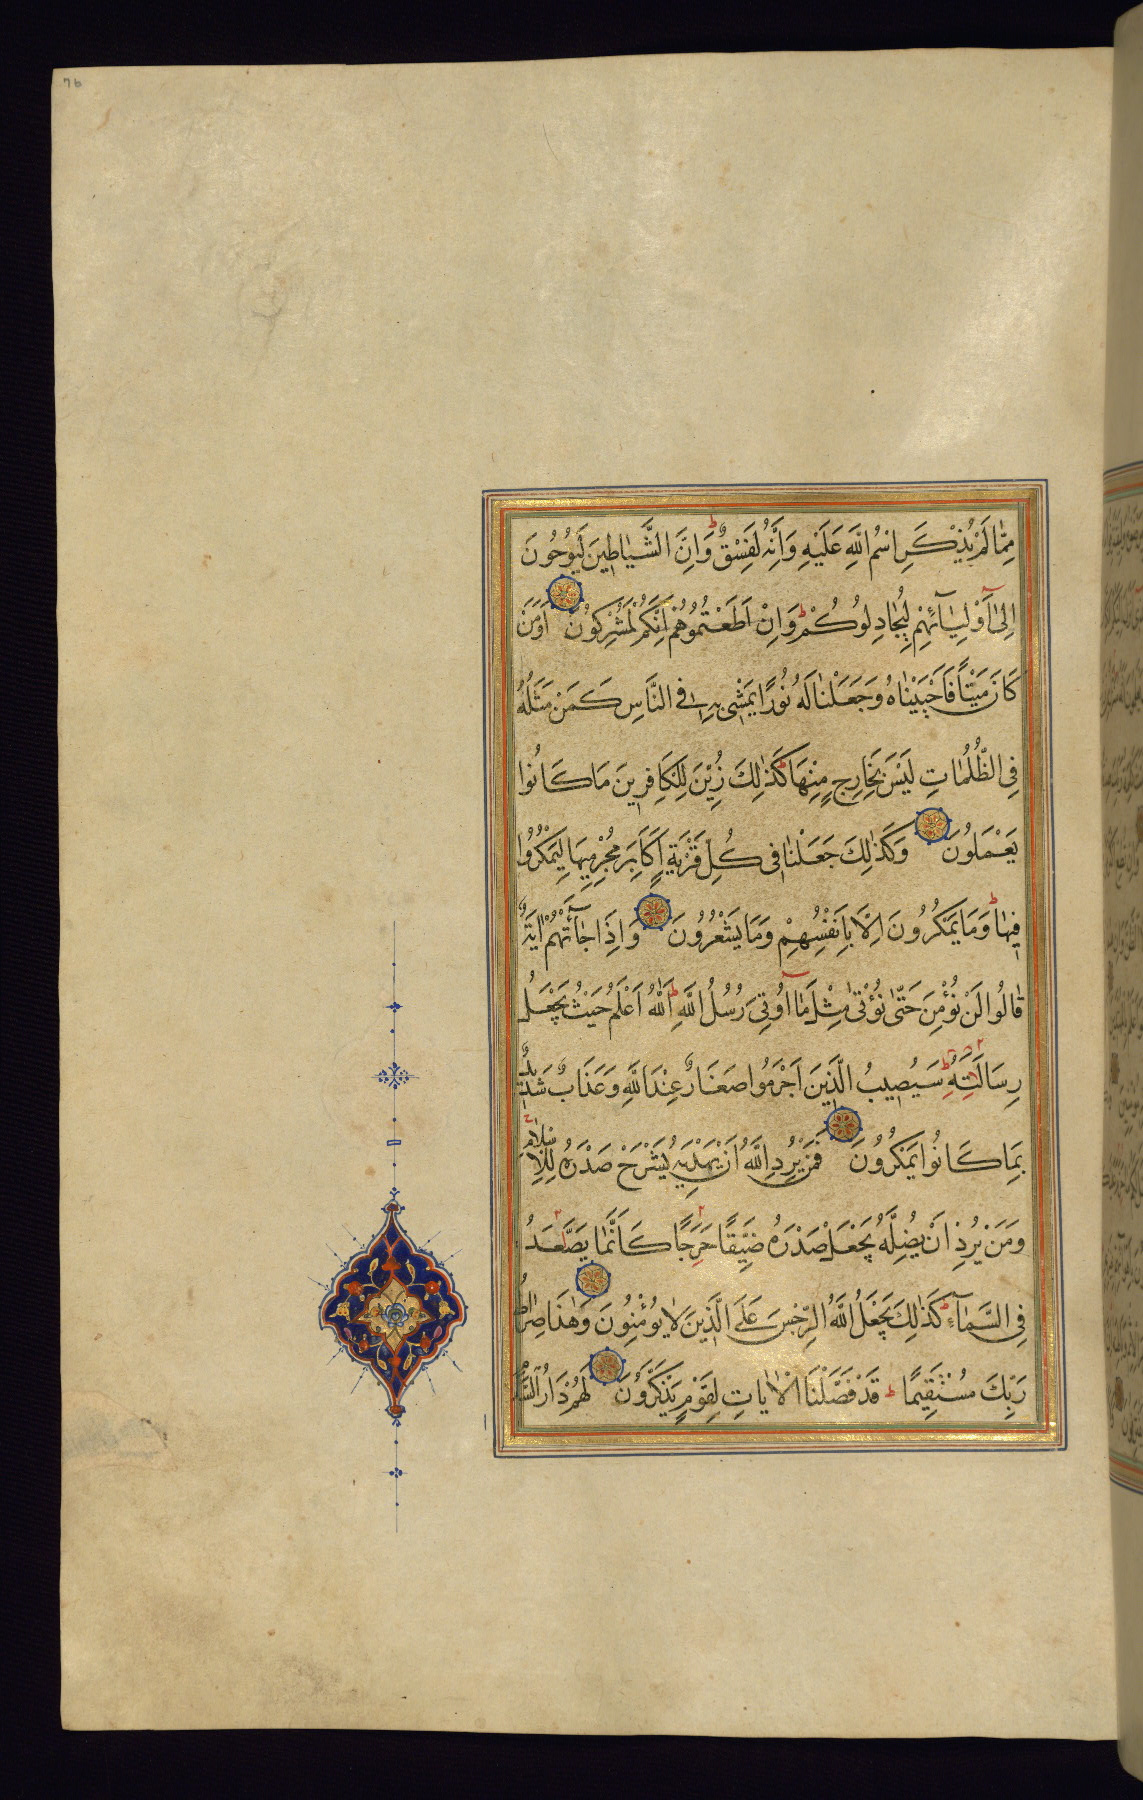 76
مِمَّا لَمْ يُذْكَرِ اسْمُ اللَّهِ عَلَيْهِ وَاِنَّهُ لَفِسْقٌ ط وَاِنَّ الشَّيَاطِينَ لَيُوحُونَ
اِلٰٓى اَوْلِيَآئِهِمْ لِيُجَادِلُوكُمْ ط وَاِنْ اَطَعْتُمُوهُمْ اِنَّكُمْ لَمُشْرِكُونَ اَوَمَنْ
كَانَ مَيْتًا فَاَحْيَيْنَاهُ وَجَعَلْنَا لَهُ نُورًا يَمْشِى بِهِ فِى النَّاسِ كَمَنْ مَثَلُهُ
فِى الظُّلُمَاتِ لَيْسَ بِخَارِجٍ مِنْهَا ط كَذٰلِكَ زُيِّنَ لِلْكَافِرِينَ مَا كَانُوا
يَعْمَلُونَ وَكَذٰلِكَ جَعَلْنَا فِى كُلِّ قَرْيَةٍ اَكَابِرَ مُجْرِمِيهَا لِيَمْكُرُوا
فِيهَا ط وَمَا يَمْكُرُونَ اِلَّا بِاَنْفُسِهِمْ وَمَا يَشْعُرُونَ وَاِذَا جَآءَتْهُمْ اٰيَةٌ
قَالُوا لَنْ نُؤْمِنَ حَتّٰى نُؤْتٰى مِثْلَ مَآ اُوتِىَ رُسُلُ اللَّهِ ط اَللّٰهُ اَعْلَمُ حَيْثُ يَجْعَلُ
رِسَالَتَهُ ط سَيُصِيبُ الَّذِينَ اَجْرَمُوا صَغَارٌ عِنْدَ اللَّهِ وَعَذَابٌ شَدِيدٌ
بِمَا كَانُوا يَمْكُرُونَ فَمَنْ يُرِدِ اللَّهُ اَنْ يَهْدِيَهُ يَشْرَحْ صَدْرَهُ لِلْاِسْلَامِ
وَمَنْ يُرِدْ اَنْ يُضِلَّهُ يَجْعَلْ صَدْرَهُ ضَيِّقًا حَرَجًا كَاَنَّمَا يَصَّعَّدُ
فِى السَّمَآءِ ط كَذٰلِكَ يَجْعَلُ اللَّهُ الرِّجْسَ عَلَى الَّذِينَ لَا يُؤْمِنُونَ وَهٰذَا صِرَاطُ
رَبِّكَ مُسْتَقِيمًا ط قَدْ فَصَّلْنَا الْاٰيَاتِ لِقَوْمٍ يَذَّكَّرُونَ لَهُمْ دَارُ السَّلَامِ